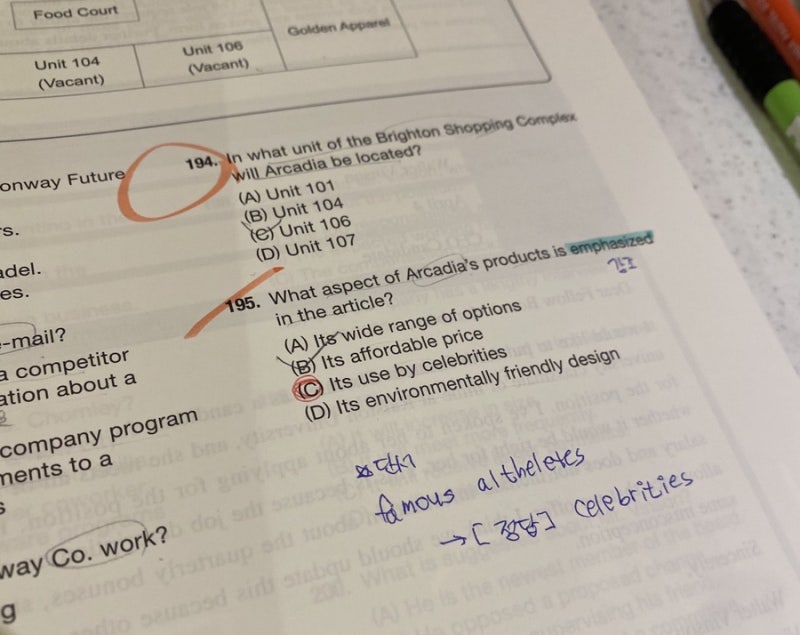 Food Court
Golden Apparel
Unit 104
(Vacant)
Unit 106
(Vacant)
onway Future
rs.
adel.
es.
e-mail?
a competitor
ation about a
company program
ments to a
s
way Co. work?
g
194. In what unit of the Brighton Shopping Complex
will Arcadia be located?
(A) Unit 101
(B) Unit 104
(C) Unit 106
(D) Unit 107
195. What aspect of Arcadia's products is emphasized
강조
in the article?
(A) Its wide range of options
(B) Its affordable price
(C) Its use by celebrities
(D) Its environmentally friendly design
famous altheletes
→ [정답] celebrities